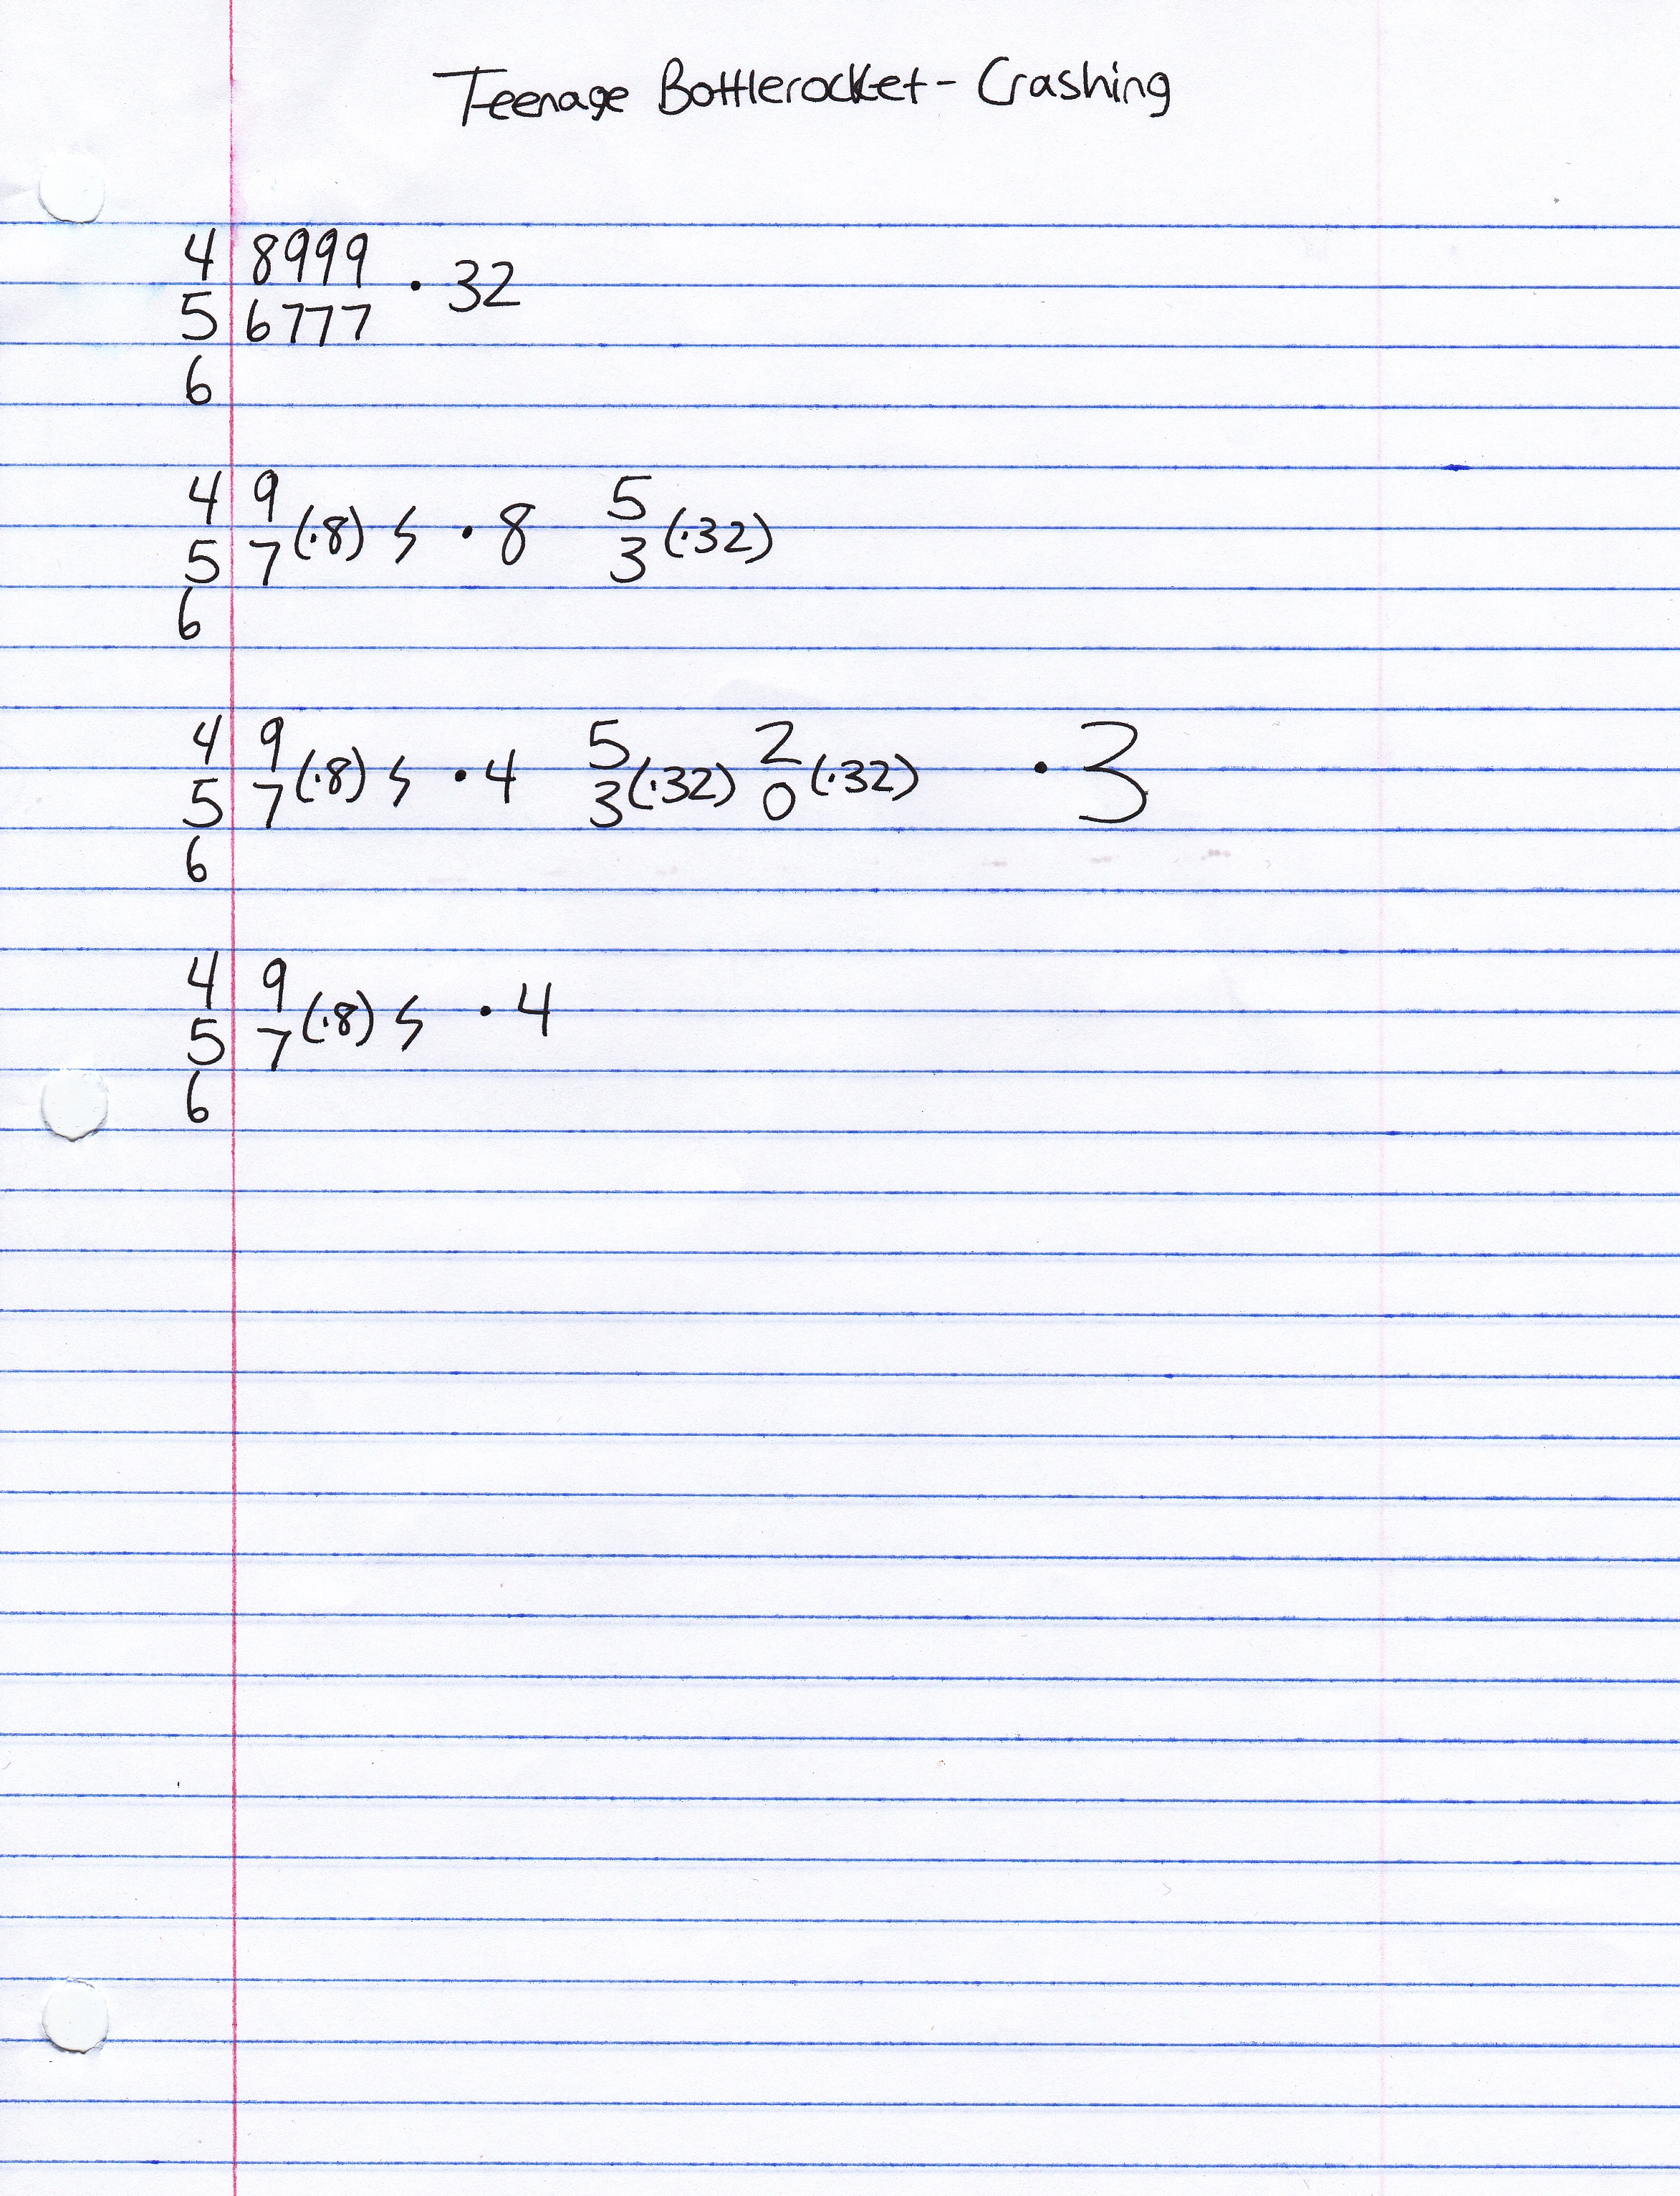 Teenage Bottlerocket - Crashing
4 8999
· 32
5 6777
6
4 9 5
(·8) ϟ · 8 (·32)
5 7 3
6
4 9 5 2
(·8) ϟ · 4 (·32) (·32) · 3
5 7 3 0
6
4 9
(·8) ϟ · 4
5 7
6